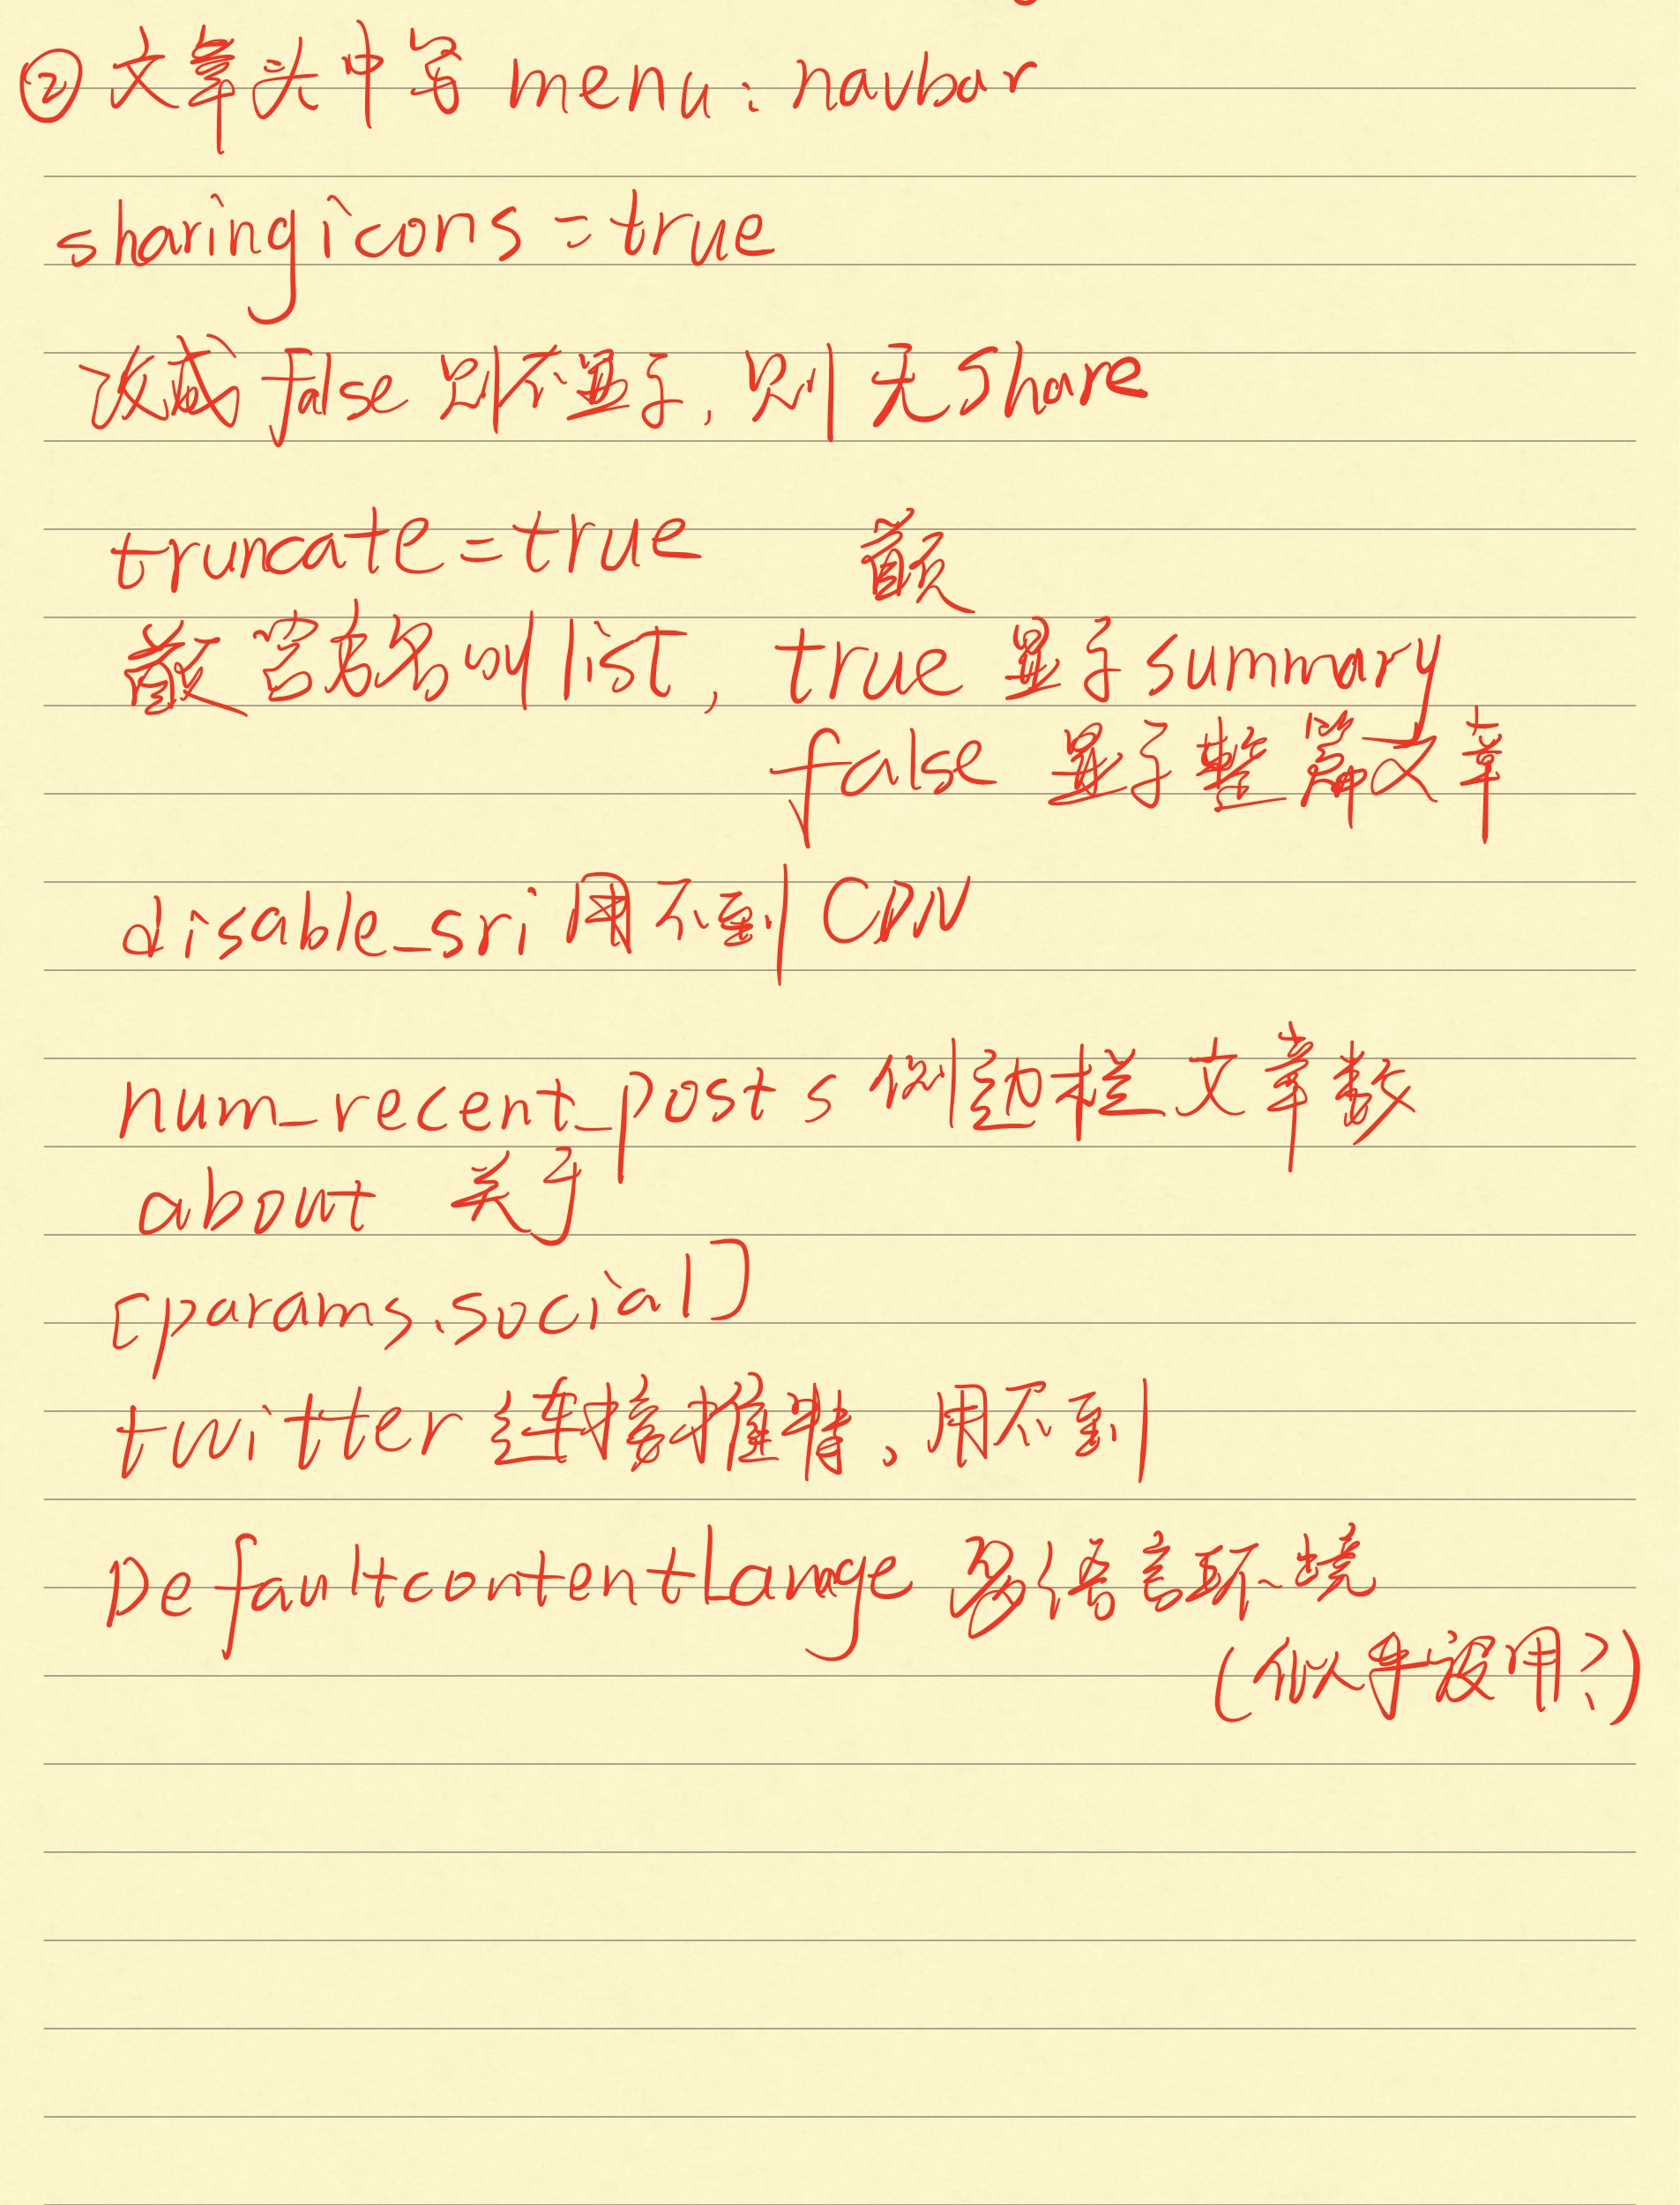 ② 文章头中写 menu: navbar
sharingicons = true
改成 false 则不显示, 则无 Share
truncate = true
list, true 显示 summary
false 显示整篇文章
disable_sri 用不到 CDN
num_recent_posts 侧边栏文章数
about 关于
[params.social]
twitter 连接推特、用不到
Defaultcontent 多语言环境
(似乎没用?)